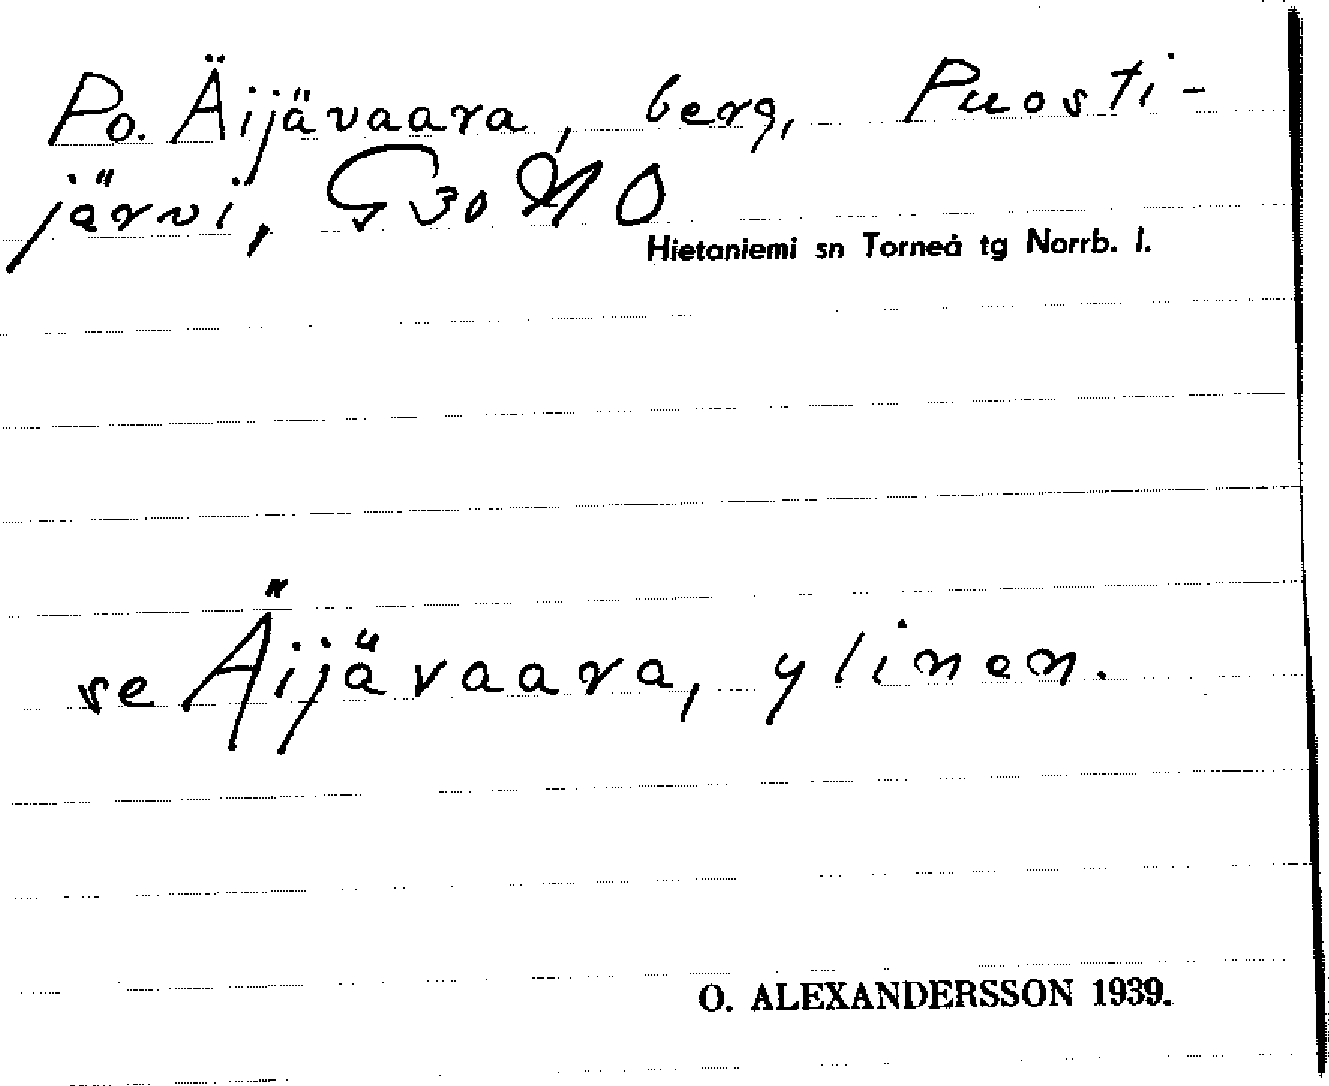 Po. Äijävaara, berg, Puosti-
järvi, G 30 NO
Hietaniemi sn Torneå tg Norrb. l.
se Äijävaara, ylinen.
O. ALEXANDERSSON 1939.